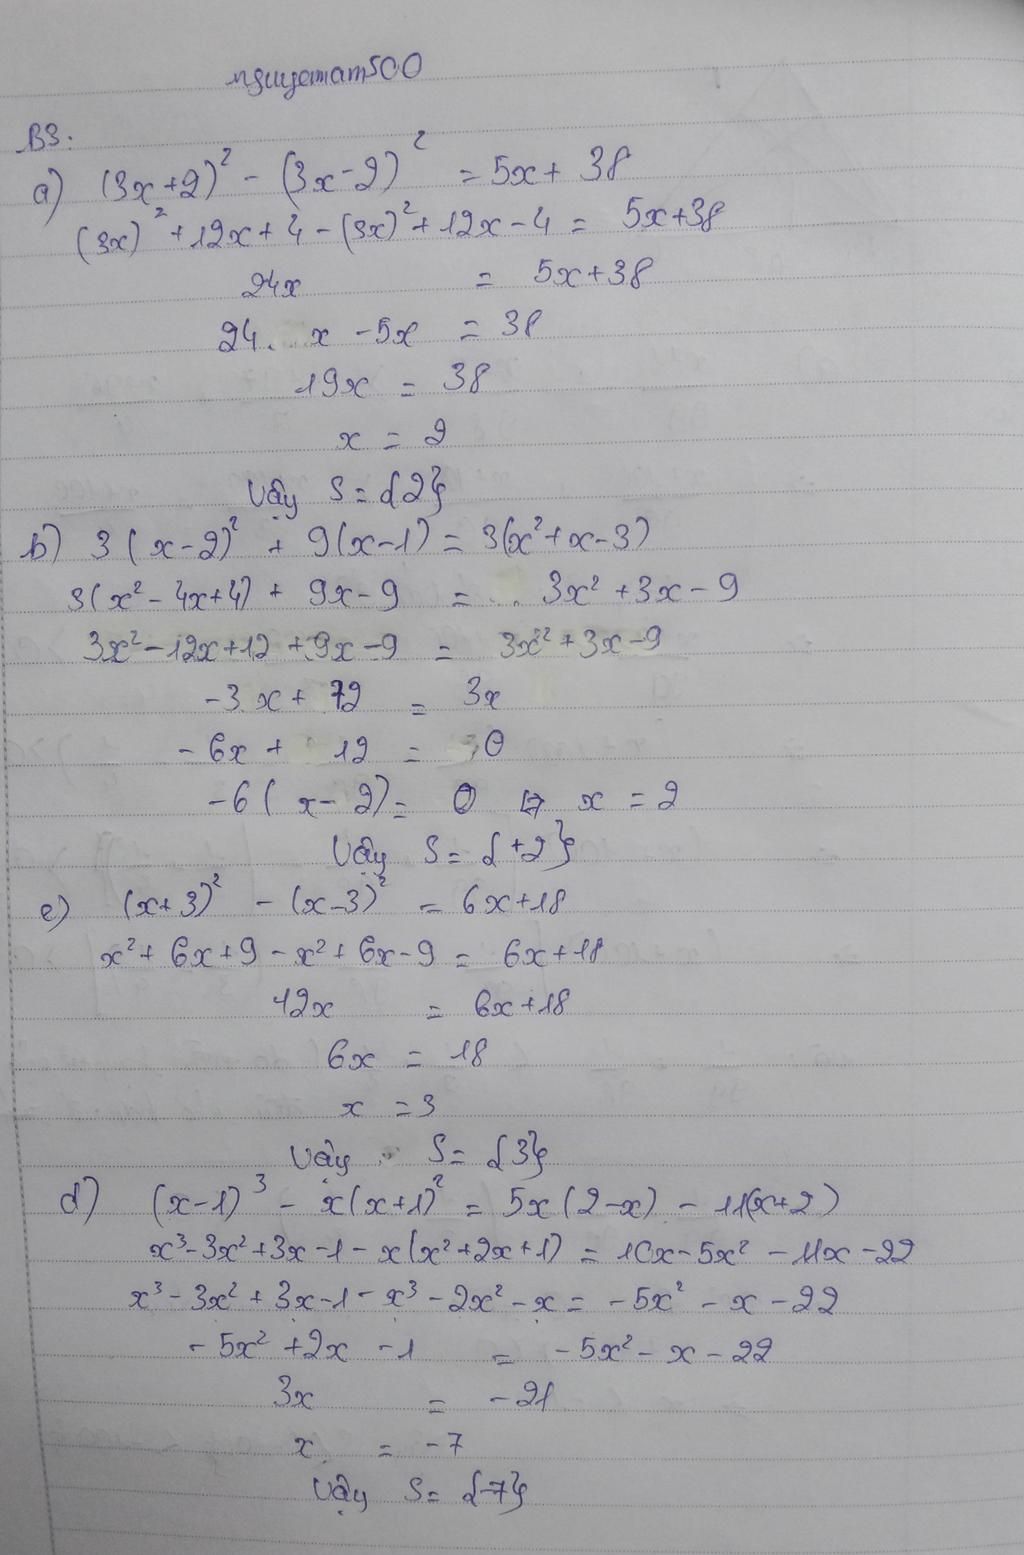 nguyetnat500
B3:
a) (3x+2)² - (3x-2)² = 5x + 38
(3x)² + 12x + 4 - (3x)² + 12x - 4 = 5x+38
24x = 5x+38
24. x - 5x = 38
19x = 38
x = 2
Vậy S = {2}
b) 3(x-2)² + 9(x-1) = 3(x²+x-3)
3(x² - 4x+4) + 9x-9 = 3x² +3x - 9
3x² - 12x+12 + 9x-9 = 3x² + 3x-9
-3x + 12 = 3x
- 6x + 12 = 0
-6(x-2) = 0 ⇔ x = 2
Vậy S = {+2}
c) (x+3)² - (x-3)² = 6x+18
x² + 6x+9 - x² + 6x-9 = 6x+18
12x = 6x+18
6x = 18
x = 3
Vậy S = {3}
d) (x-1)³ - x(x+1)² = 5x(2-x) - 11(x+2)
x³-3x²+3x-1-x(x²+2x+1) = 10x-5x² - 11x - 22
x³ - 3x² + 3x-1 - x³ - 2x² - x = -5x² - x - 22
- 5x² +2x -1 = -5x² - x - 22
3x = -21
x = -7
Vậy S = {-7}